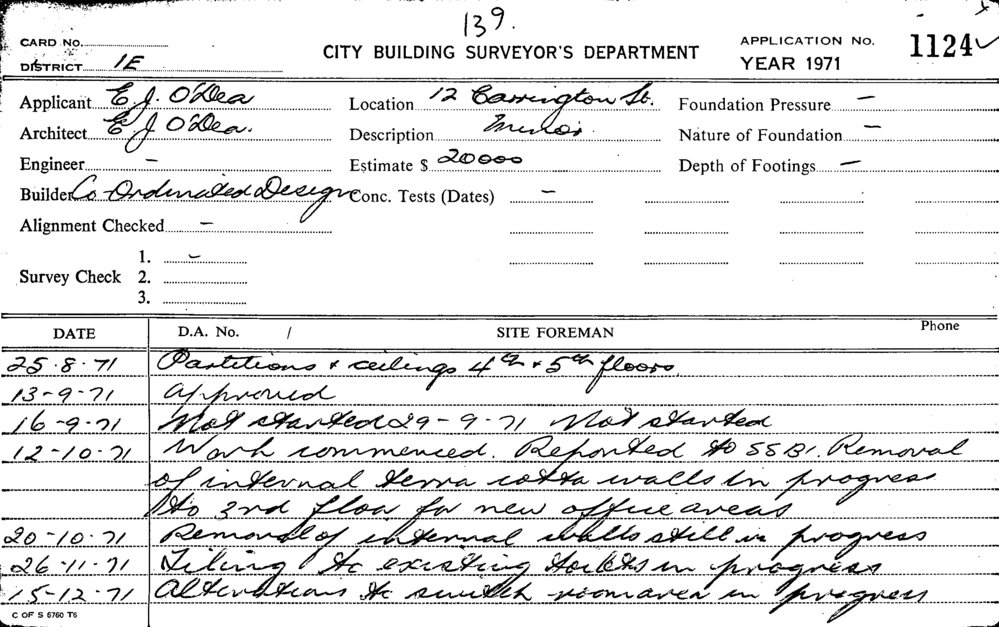 139.
CARD No.
DISTRICT 1E
CITY BUILDING SURVEYOR'S DEPARTMENT
APPLICATION No. 1124 ✓
YEAR 1971
Applicant E. J. O'Dea Location 12 Carrington St. Foundation Pressure –
Architect E J O'Dea. Description Minor. Nature of Foundation –
Engineer – Estimate $ 20000 Depth of Footings –
Builder Co-Ordinated Design Conc. Tests (Dates) –
Alignment Checked –
1. –
Survey Check 2.
3.
DATE D.A. No. / SITE FOREMAN Phone
25.8.71 Partitions + ceilings 4th + 5th floors.
13-9-71 Approved
16-9-71 Not started 29-9-71 Not started
12-10-71 Work commenced. Reported to SSBI. Removal
of internal terra cotta walls in progress
to 3rd floor for new office areas
20-10-71 Removal of internal walls still in progress
26-11-71 Tiling to existing toilets in progress
15-12-71 Alterations to switch room area in progress
C OF S 6760 T6